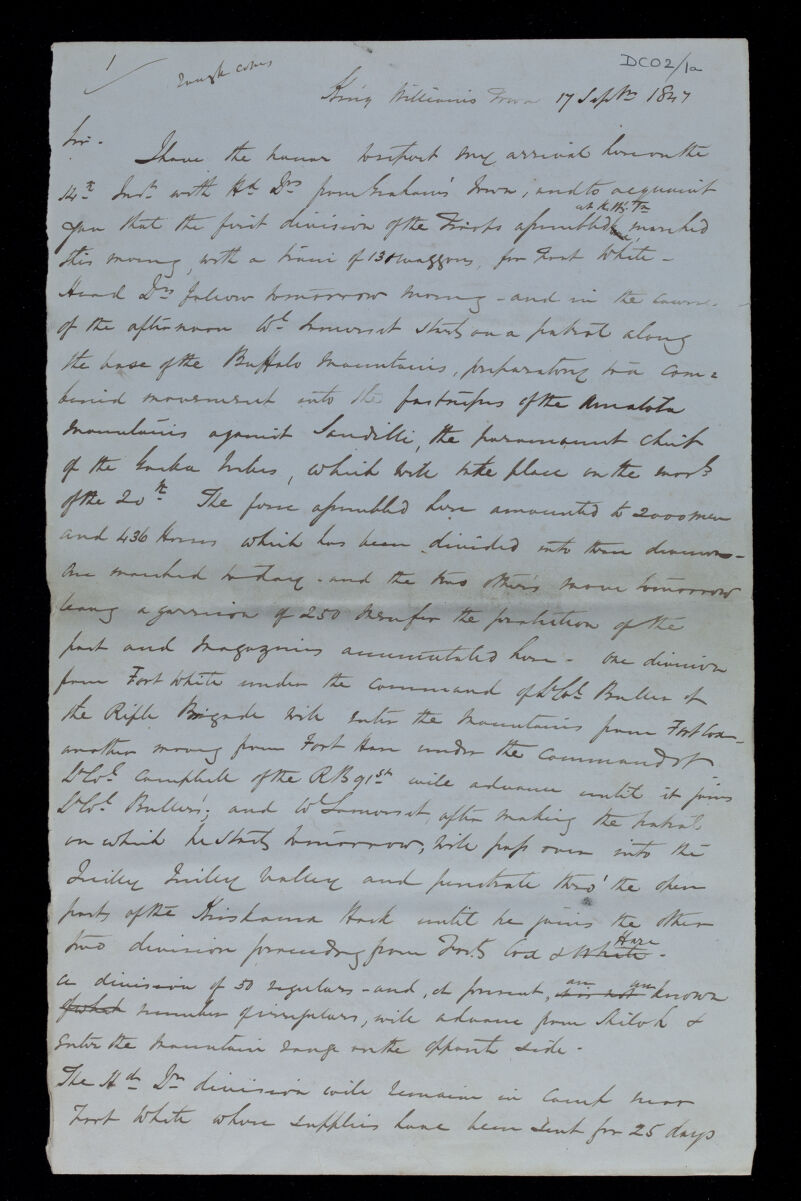 1
rough copy
DCO2/1a
King Williams Town 17 Septr 1847
Sir.
I have the honor to report my arrival here on the
14th Inst. with Hd Drs from Graham's Town, and to acquaint
at K. Wms. Tn
you that the first division of the Troops assembled marched
this morng, with a train of 130 waggons, for Fort White -
Head Drs follow tomorrow morng - and in the course
of the afternoon Col Somerset starts on a patrol along
the base of the Buffalo Mountains, preparatory to a com=
bined movement into the fastnesses of the Amatola
Mountains against Sandilli, the paramount Chief
of the Gaika Tribes, which will take place on the morng
of the 20th. The force assembled here amounted to 2000 men
and 436 Horses which has been divided into three divisions -
One marched to day - and the two others move tomorrow
leavg a garrison of 250 Men for the protection of the
post and Magazines accumulated here - One division
from Fort White under the command of Lt Col Buller of
the Rifle Brigade will enter the Mountains from Fort Cox -
another moving from Fort Hare under the command of
Lt Col Campbell of the RB 91st will advance until it joins
Lt Col Buller's; and Col Somerset, after making the patrol
on which he starts tomorrow, will pass over into the
and penetrate thro' the open
parts of the Keiskama Hoek until he joins the other
Hare
two division proceedg from Forts Cox & White -
an un
a division of 50 regulars - and, at present, is not known
of what number of irregulars, will advance from Shiloh &
enter the Mountain range on the opposite side -
The Hd Dr division will remain in Camp near
Fort White where supplies have been sent for 25 days